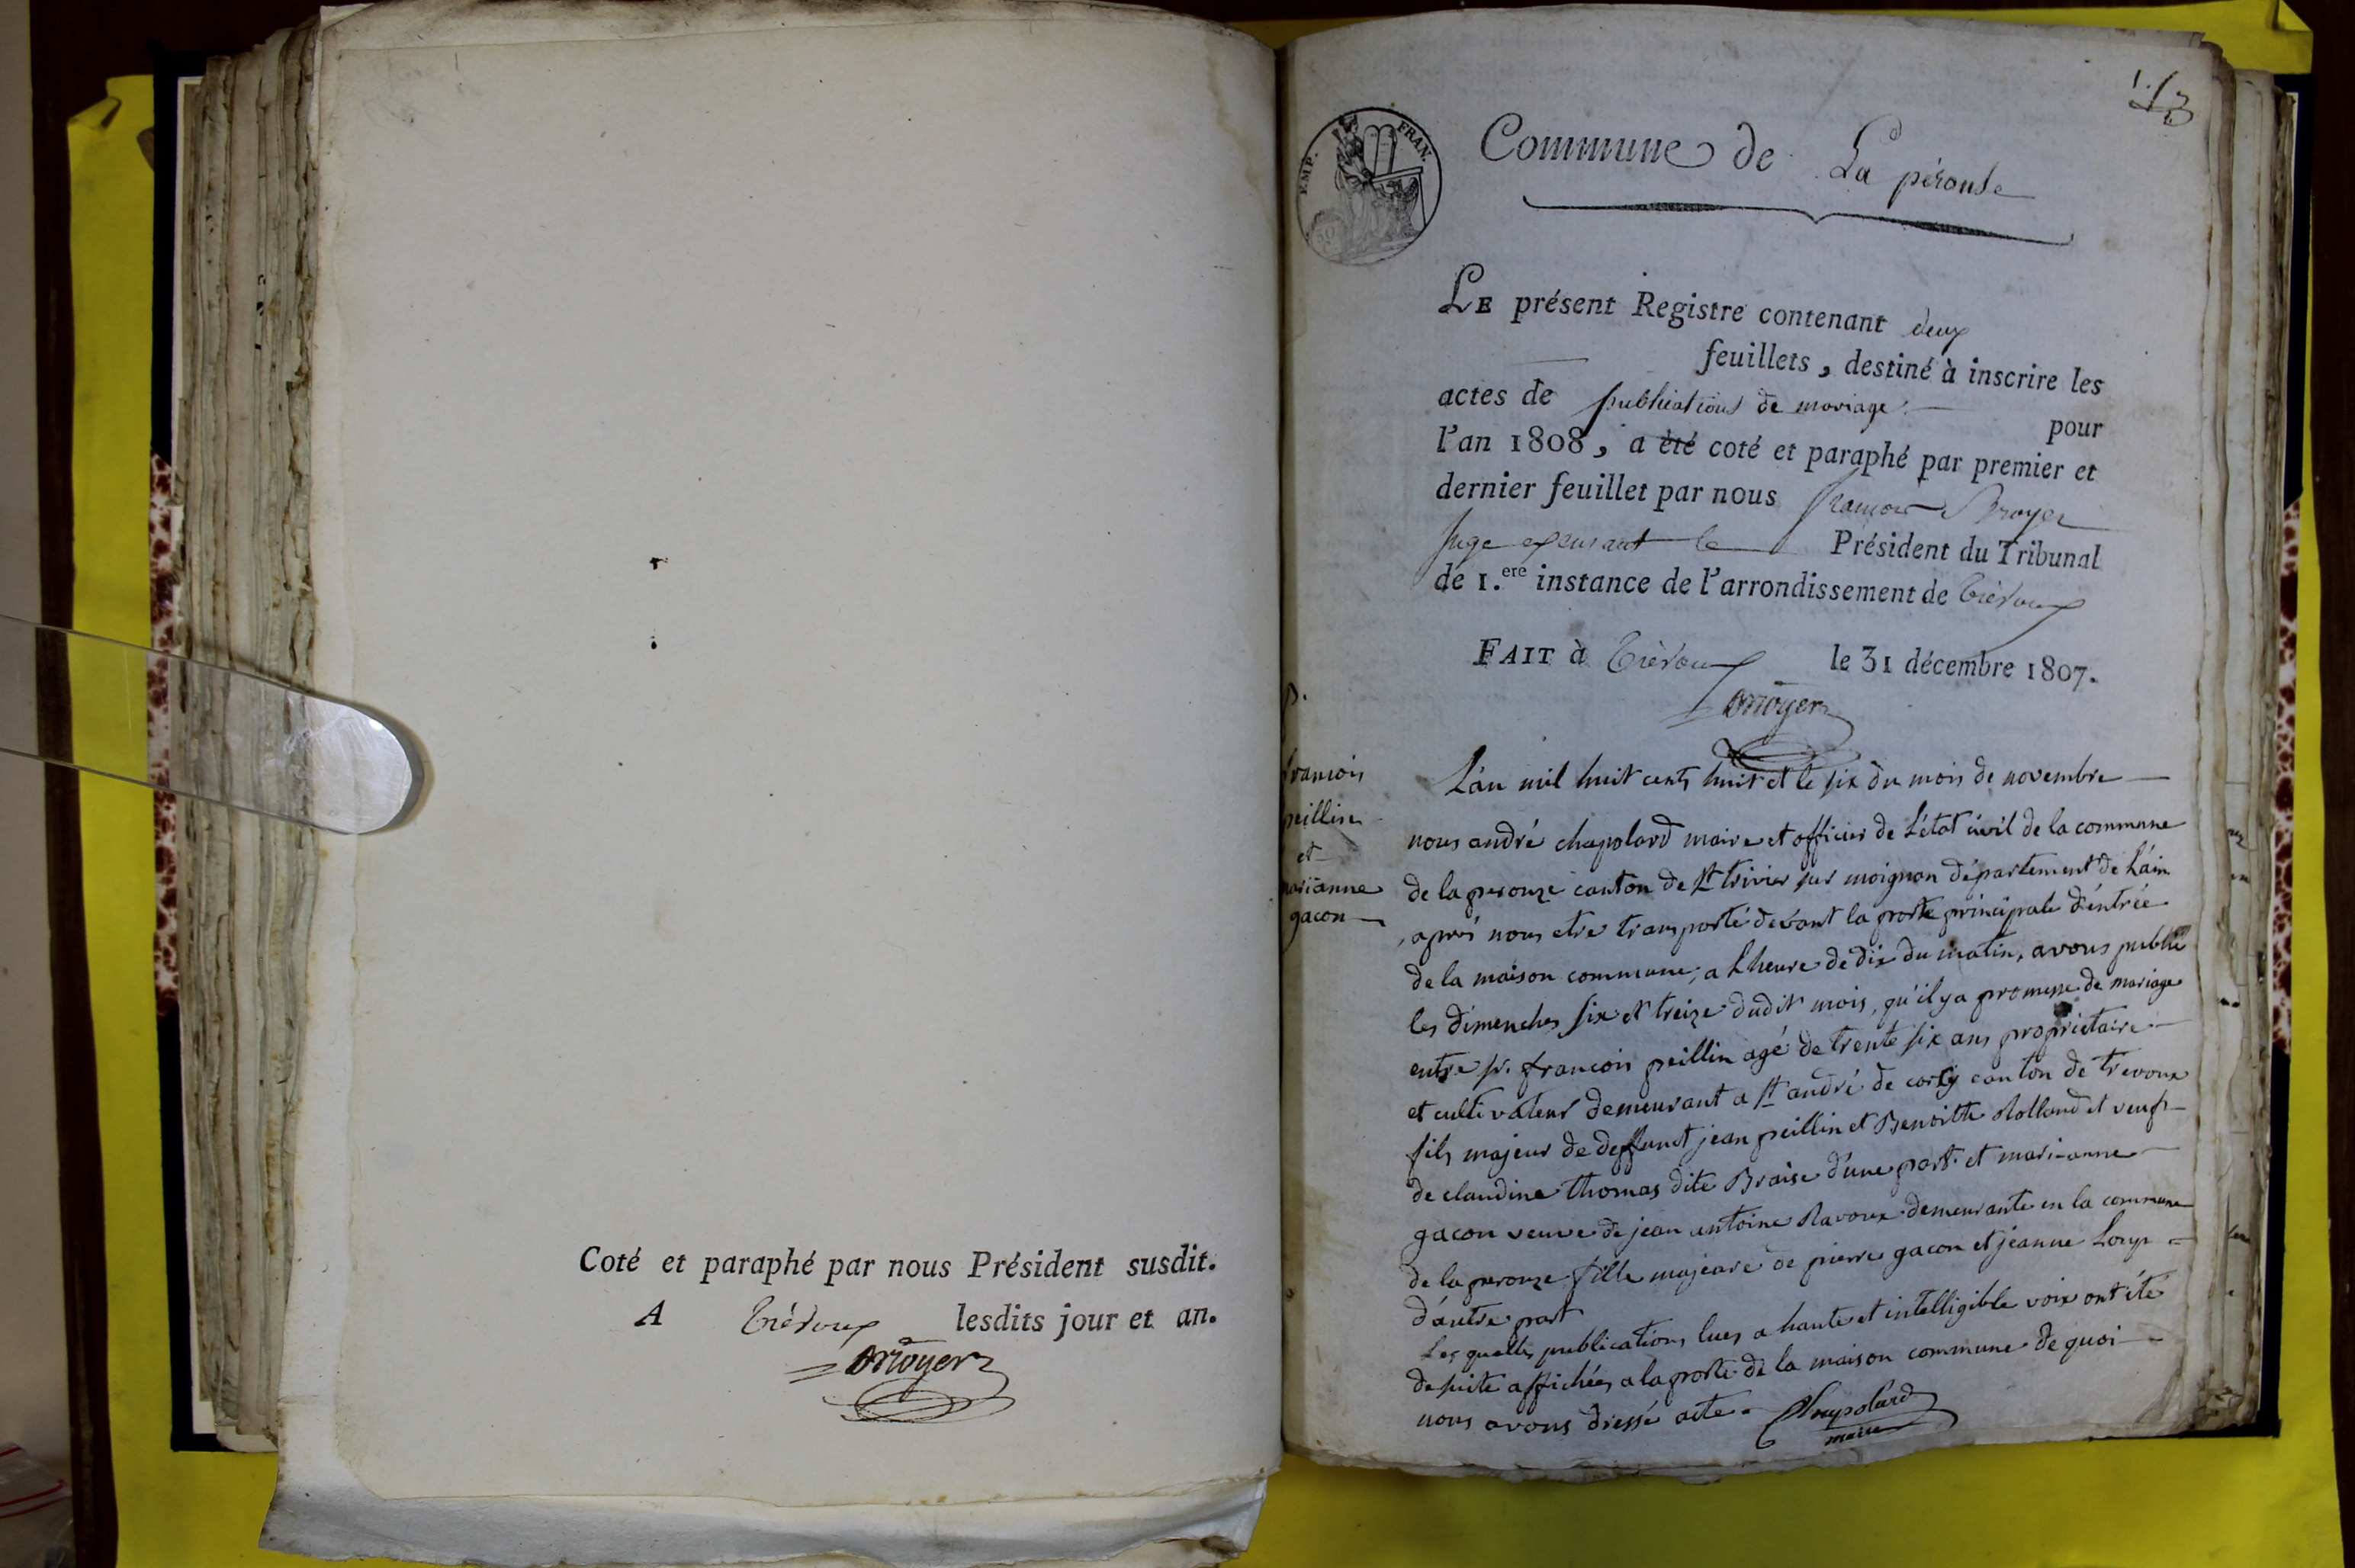 Coté et paraphé par nous Président susdit.
A Trévoux lesdits jour et an.
Brroyer
EMP. FRAN.
Commune de La pérouse
LE présent Registre contenant deux
feuillets, destiné à inscrire les
actes de publications de mariage pour
l'an 1808, a été coté et paraphé par premier et
dernier feuillet par nous françois Broyer
Juge exerçant le Président du Tribunal
de 1.ere instance de l'arrondissement de Trévoux
FAIT à Trévoux le 31 décembre 1807.
Brroyer
françois
peillin
et
marianne
gacon
L'an mil huit cents huit et le six du mois de novembre
nous andré chapolard maire et officier de L'état civil de la commune
de la perouze canton de St trivier sur moignan département de L'ain
, aprés nous etre transporté devant la porte principale d'éntrée
de la maison commune, a L'heure de dix du matin, avons publié
les dimenches six et treize dudit mois, qu'il y a promesse de mariage
entre sr. francois peillin agé de trente six ans propriétaire
et cultivateur demeurant a St andré de corcy canton de trevoux
fils majeur de deffunct jean peillin et Benoitte Rolland et veuf
de claudine thomas dite Braise d'une part et mari-anne
gacon veuve de jean antoine Ravoux demeurante en la commune
de la perouze fille majeure de pierre gacon et jeanne Loup
d'autre part
Les quelles publications lues a haute et intelligible voix ont été
de suite affichées a la porte de la maison commune de quoi
nous avons dressé acte. Chapolard
maire